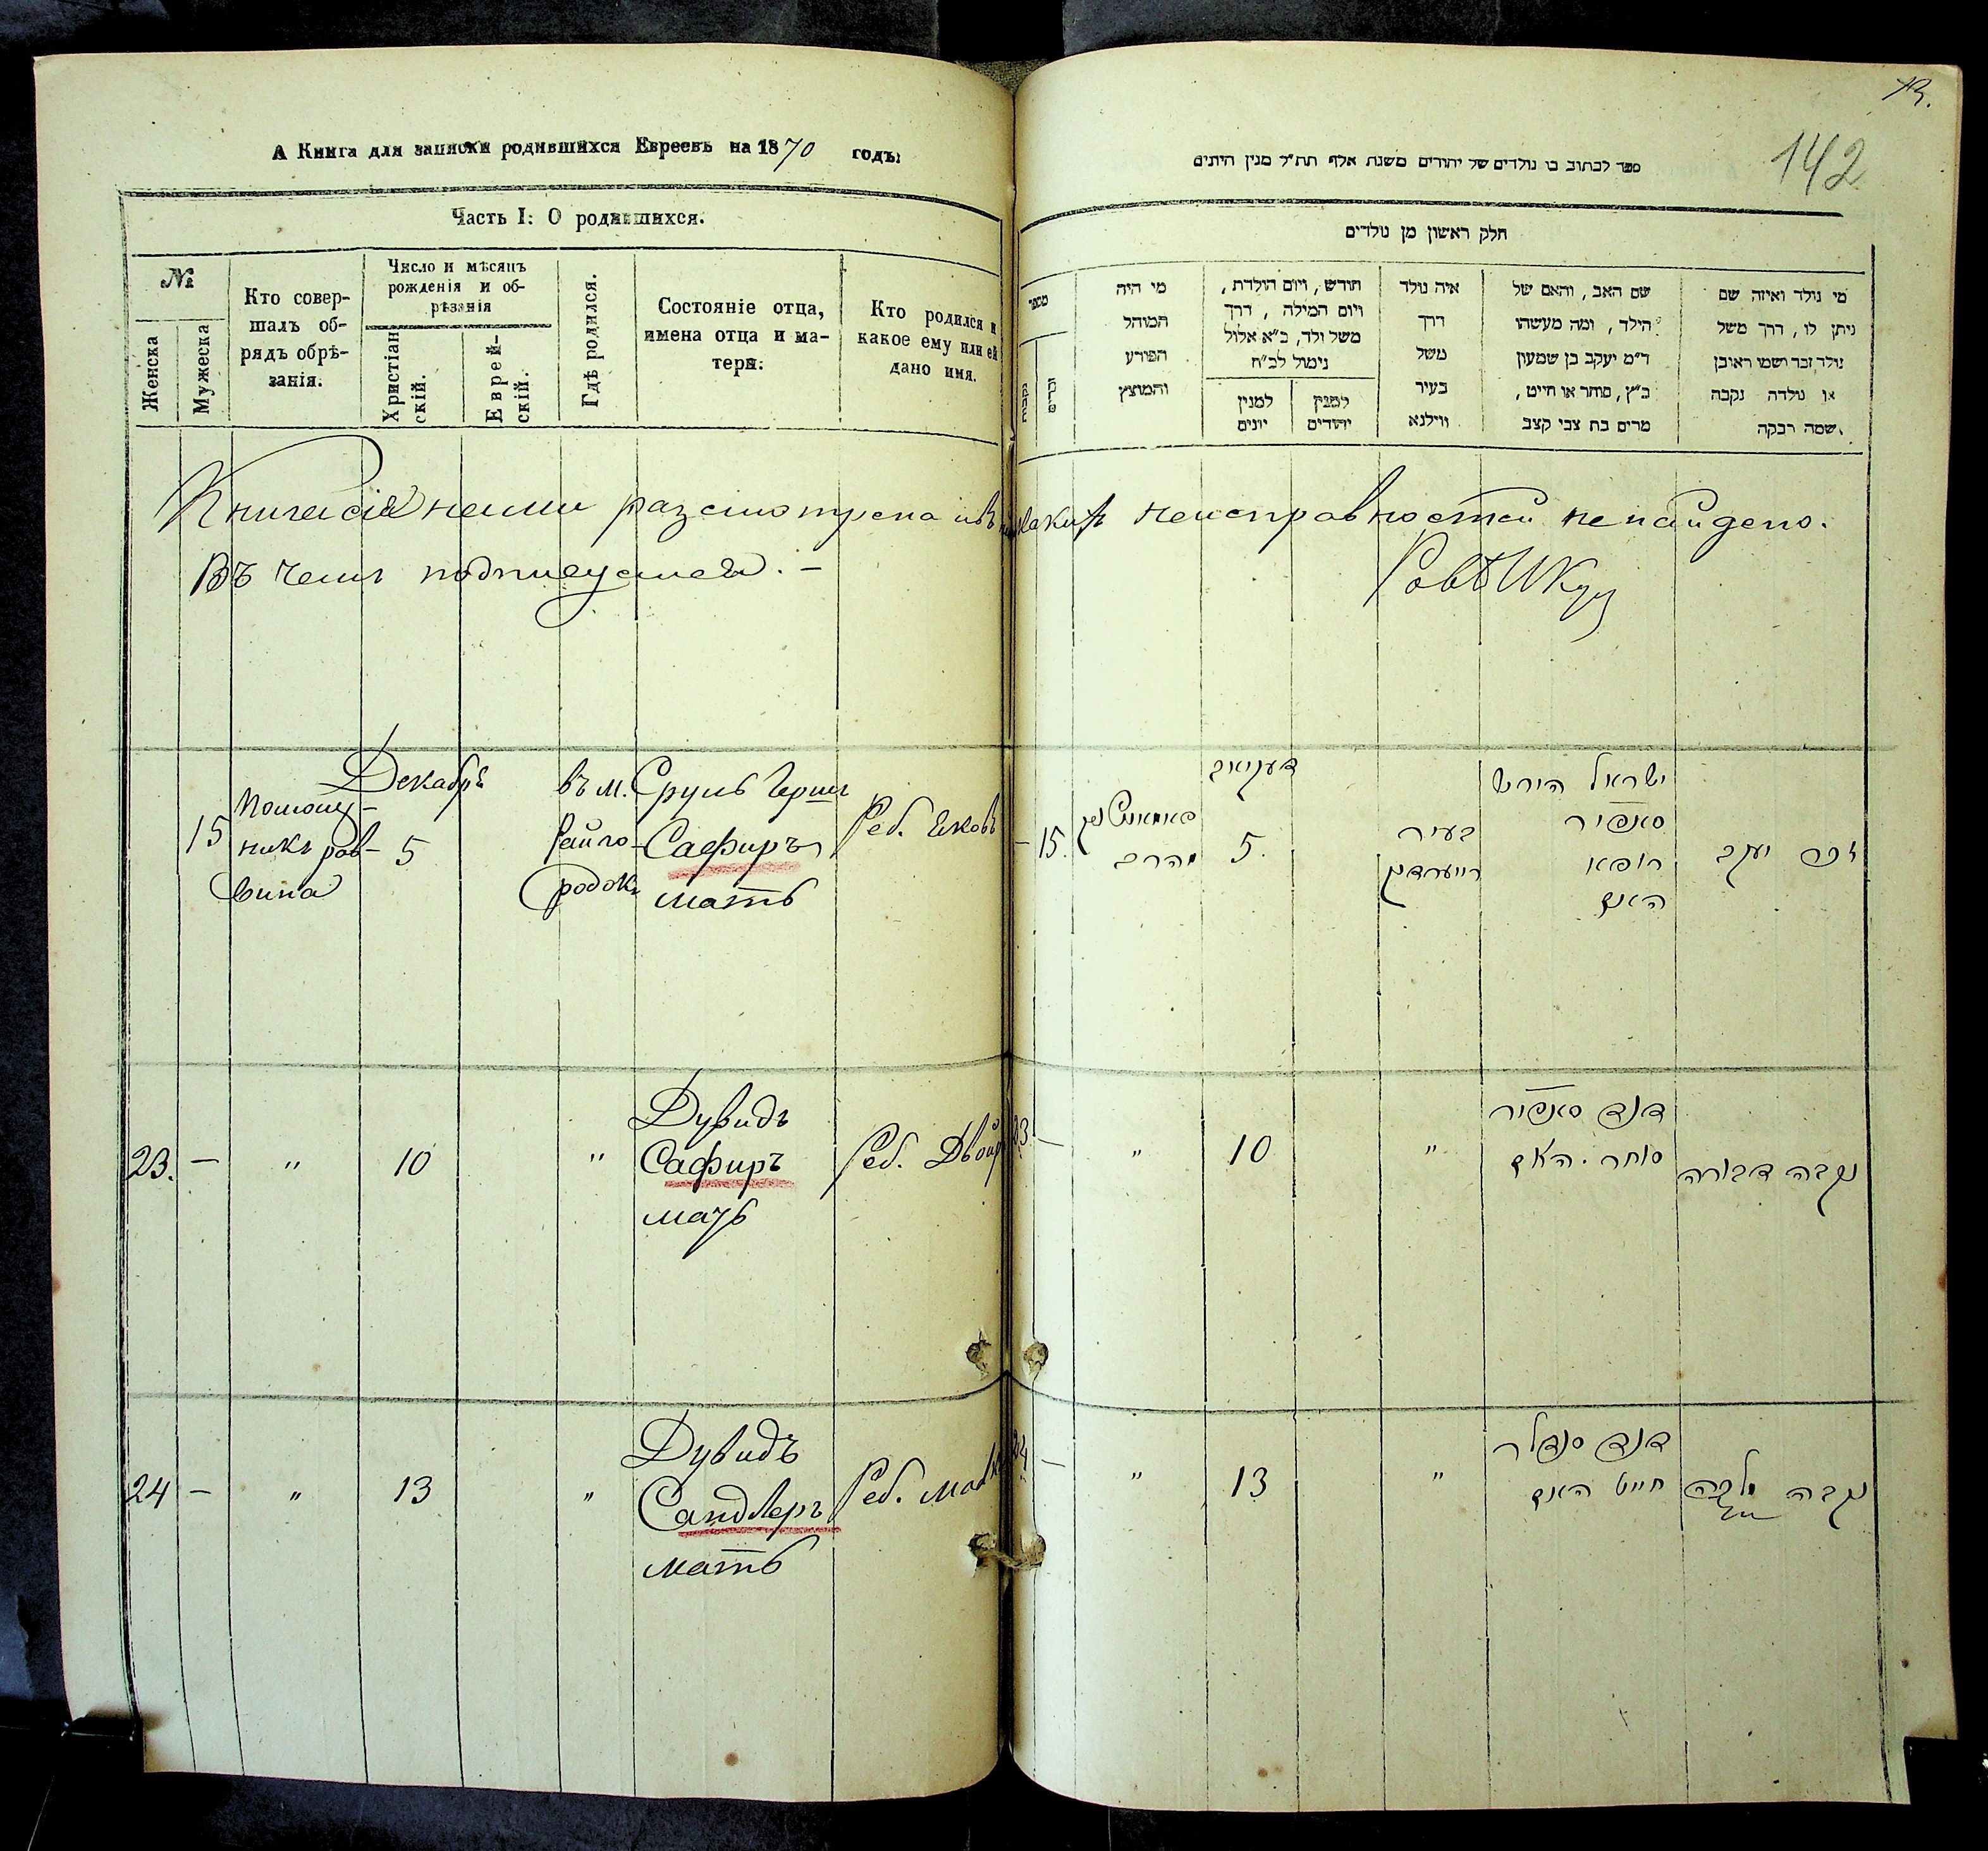 А Книга для записки родившихся Евреевъ на 1870 годъ.
Часть I: О родившихся.
№
Женска
Мужеска
Кто совер-
шалъ об-
рядъ обрѣ-
занія.
Число и мѣсяцъ
рожденія и об-
рѣзанія
Христіан
скій.
Еврей-
скій.
Гдѣ родился.
Состояніе отца,
имена отца и ма-
тери.
Кто родился и
какое ему или ей
дано имя.
73.
142
ספר לכתוב בו נולדים של יהודים משנת אלף תת״ל מנין היונים
חלק ראשון מן נולדים
מספר
נקבות
זכרים
מי היה
המוהל
הפורע
והמוצץ
חודש, ויום הולדת,
ויום המילה, דרך
משל ולד, כ״א אלול
נימול לכ״ח
למנין
יהודים
למנין
יונים
איה נולד
דרך
משל
בעיר
ווילנא
שם האב, והאם של
הילד, ומה מעשהו
ד״מ יעקב בן שמעון
כ״ץ, סוחר או חייט,
מרים בת צבי קצב
מי נולד ואיזה שם
ניתן לו, דרך משל
נולד זכר ושמו ראובן
או נולדה נקבה
שמה רבקה
Книга сія нами разсмотрена и въ неисправностей не найдено.
Въ чемъ подписуемся. –
15
Помощ-
никъ рав-
вина
Декабрь
5
въ м.
Райго-
родокъ
Сруль Гершъ
Сафиръ
мать
Реб. Яковъ
– 15.
5.
בעיר
ישראל הירש
סאפיר
רופא
האם
זכר יעקב
23. –
"
10
"
Дувидъ
Сафиръ
мать
Реб. Двойр
23 –
"
10
"
דוד סאפיר
סוחר. האם
נקבה דבורה
24 –
"
13
"
Дувидъ
Сандлеръ
мать
Реб.
24 –
"
13
"
דוד סנדלר
חייט האם
נקבה